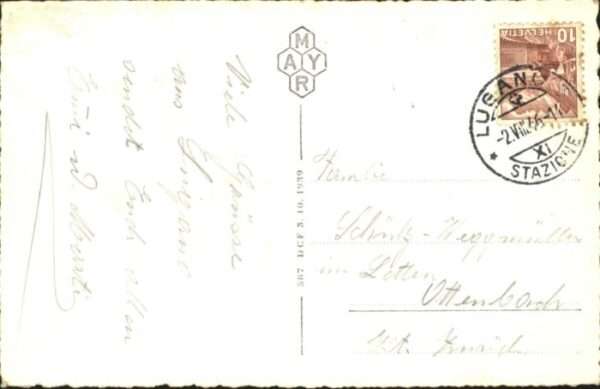 Viele Grüsse
aus Lugano
sendet Euch allen
MAYR
567 DCF 3.10.1939
HELVETIA
10
LUGANO
-2.VIII.
XI
STAZIONE
Familie
Schütz-Weggmüller
im Letten
Ottenbach
Kt. Zürich